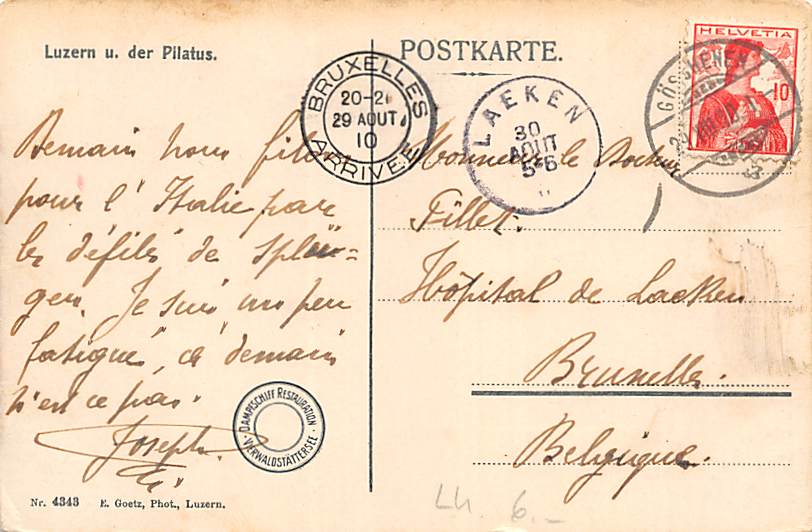 Luzern u. der Pilatus.
POSTKARTE.
HELVETIA
10
GÖSCHENEN
BRUXELLES
20-2
29 AOUT
10
ARRIVEE
LAEKEN
30
AOUT
5-6
Demain nous filons
pour l'Italie par
les défilés de Splü=
gen. Je suis un peu
fatigué, à demain
n'est ce pas.
Joseph
Monsieur le Docteur
Fillet.
Hôpital de Laeken
Bruxelles.
Belgique.
DAMPFSCHIFF RESTAURATION
VIERWALDSTÄTTERSEE
Nr. 4343 E. Goetz, Phot., Luzern.
6.-